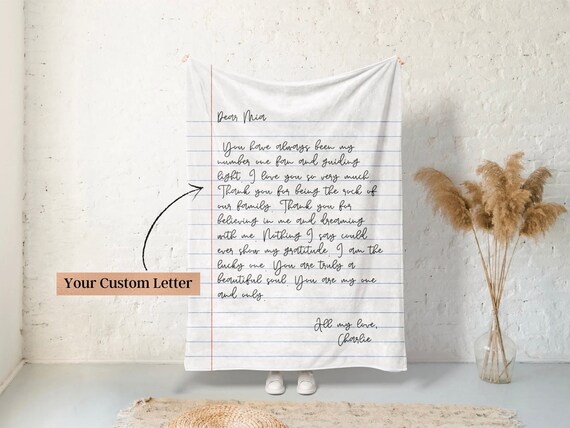 Dear Mia
You have always been my
number one fan and guiding
light. I love you so very much.
Thank you for being the rock of
our family. Thank you for
believing in me and dreaming
with me. Nothing I say could
ever show my gratitude. I am the
lucky one. You are truly a
beautiful soul. You are my one
and only.
All my love,
Charlie
Your Custom Letter